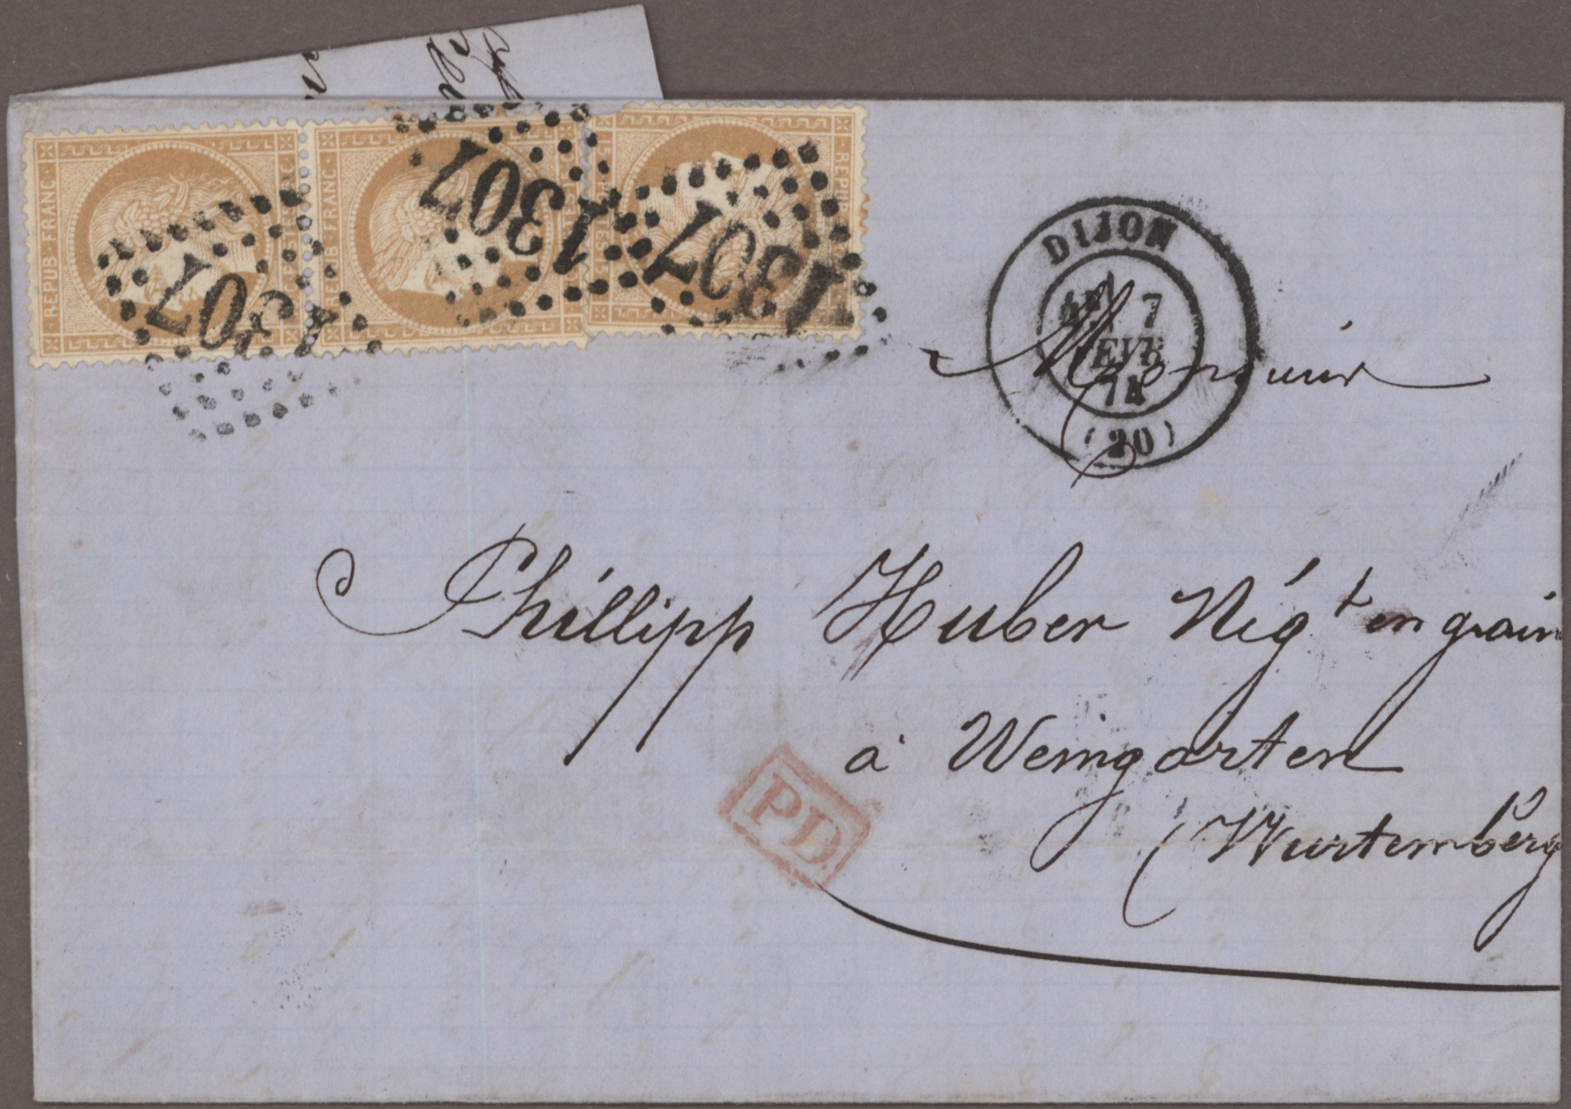 REPUB FRANC
REPUB FRANC
REPU
1307
1307
1307
DIJON
7
FEVR
74
(20)
Monsieur
Phillipp Huber Négt en grain
à Weingarten
(Wurtemberg
PD